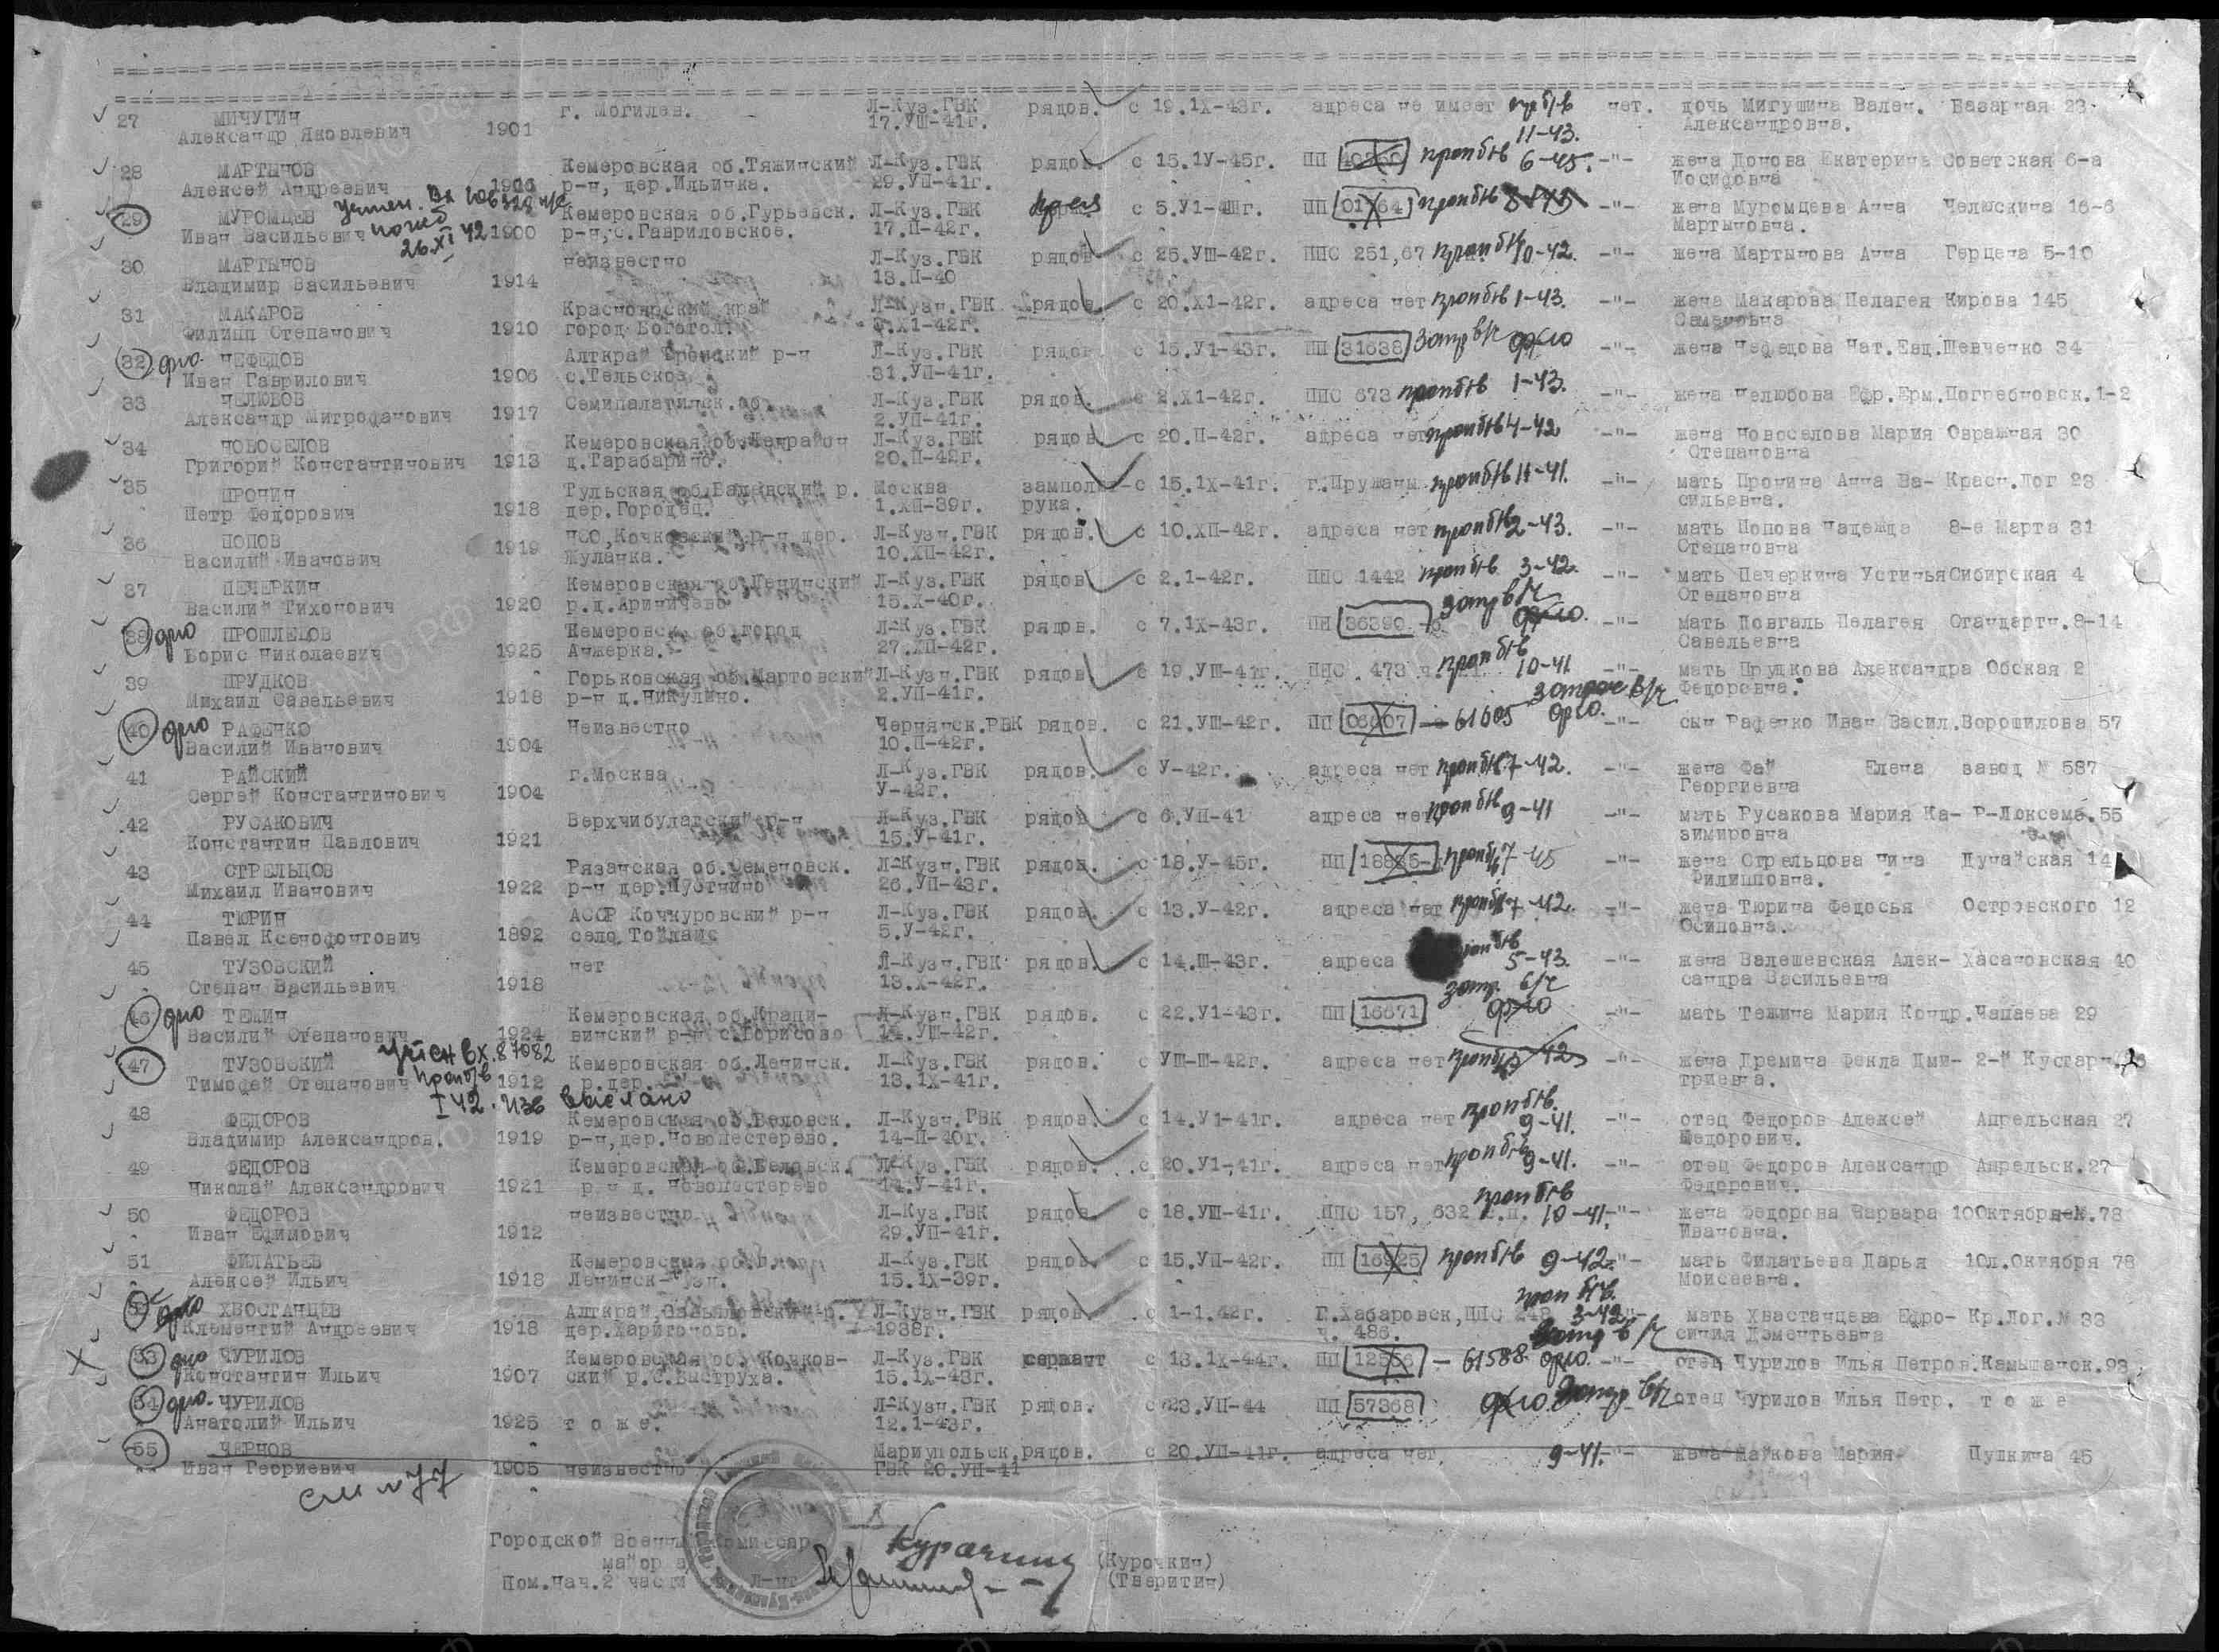 27 МИЧУГИН г. Могилев. Л-Куз.ГВК рядов. с 19.1Х-43г. адреса не имеет проп б/в нет. дочь Мигушина Вален. Базарная 23
Александр Яковлевич 1901 17.УШ-41г. 11-43. Александровна.
28 МАРТЫНОВ Кемеровская об.Тяжинский Л-Куз.ГВК рядов. с 15.1У-45г. ПП проп б/в 6-45. -"- жена Донова Екатерина Советская 6-а
Алексей Андреевич 1906 р-н, дер.Ильинка. 29.УП-41г. Иосифовна
29 МУРОМЦЕВ Кемеровская об.Гурьевск. Л-Куз.ГВК с 5.У1-4Шг. ПП проп б/в -"- жена Муромцева Анна Челюскина 16-6
Иван Васильевич погиб 26.XI 42 1900 р-н,с.Гавриловское. 17.П-42г. Мартыновна.
30 МАРТЫНОВ неизвестно Л-Куз.ГВК рядов. с 25.УШ-42г. ППС 251,67 проп б/в 10-42. -"- жена Мартынова Анна Герцена 5-10
Владимир Васильевич 1914 13.П-40
31 МАКАРОВ Красноярский край Л-Кузн.ГВК рядов. с 20.Х1-42г. адреса нет проп б/в 1-43. -"- жена Макарова Пелагея Кирова 145
Филипп Степанович 1910 город Боготол. Семеновна
32 орю. НЕФЕДОВ Алткрай р-н Л-Куз.ГВК рядов. с 15.У1-43г. ПП 31638 Запр в/ч орю -"- жена Нефедова Нат.Евд.Шевченко 34
Иван Гаврилович 1906 с.Тельское 31.УП-41г.
33 НЕЛЮБОВ Семипалатинск.об. Л-Куз.ГВК рядов. с 2.Х1-42г. ППС 673 проп б/в 1-43. -"- жена Нелюбова Ефр.Ерм.Погребновск.1-2
Александр Митрофанович 1917 2.УП-41г.
34 НОВОСЕЛОВ Кемеровская об.Ленрайон Л-Куз.ГВК рядов. с 20.П-42г. адреса нет проп б/в 4-42 -"- жена Новоселова Мария Овражная 30
Григорий Константинович 1913 д.Тарабарино. 20.П-42г. Степановна
35 ПРОНИН Тульская об. р. Москва замполит- с 15.1Х-41г. г.Пружаны проп б/в 11-41. -"- мать Пронина Анна Ва- Красн.Лог 23
Петр Федорович 1918 дер.Городец. 1.ХП-39г. рука. сильевна.
36 ПОПОВ НСО,Кочковский р-н дер. Л-Кузн.ГВК рядов. с 10.ХП-42г. адреса нет проп б/в 2-43. -"- мать Попова Надежда 8-е Марта 31
Василий Иванович 1919 Жуланка. 10.ХП-42г. Степановна
37 ПЕЧЕРКИН Кемеровская об.Ленинский Л-Куз.ГВК рядов. с 2.1-42г. ППС 1442 проп б/в 3-42. -"- мать Печеркина Устинья Сибирская 4
Василий Тихонович 1920 р.д.Ариничево 15.Х-40г. Степановна
38 орю ПРОШЛЕЦОВ Кемеровск. об.город Л-Куз.ГВК рядов. с 7.1Х-43г. ПП 36390 запр в/ч орю. -"- мать Довгаль Пелагея Стандартн.8-14
Борис Николаевич 1925 Анжерка. 27.ХП-42г. Савельевна
39 ПРУДКОВ Горьковская об.Шартовский Л-Кузн.ГВК рядов. с 19.УШ-41г. ППС 473 проп б/в 10-41 -"- мать Прудкова Александра Обская 2
Михаил Савельевич 1918 р-н д.Никулино. 2.УП-41г. Федоровна.
40 орю РАФЕНКО Неизвестно Чернянск.РВК рядов. с 21.УШ-42г. ПП -61605 запрос в/ч орю. -"- сын Рафенко Иван Васил.Ворошилова 57
Василий Иванович 1904 10.П-42г.
41 РАЙСКИЙ г.Москва Л-Куз.ГВК рядов. с У-42г. адреса нет проп б/в 7-42. -"- жена Фай Елена завод № 587
Сергей Константинович 1904 У-42г. Георгиевна
42 РУСАКОВИЧ Верхчибулагский р-н Л-Куз.ГВК рядов. с 6.УП-41 адреса нет проп б/в 9-41 -"- мать Русакова Мария Ка- Р-Люксемб.55
Константин Павлович 1921 15.У-41г. зимировна
43 СТРЕЛЬЦОВ Рязанская об.Семеновск. Л-Кузн.ГВК рядов. с 18.У-45г. ПП проп б/в 7-45 -"- жена Стрельцова Нина Дунайская 14
Михаил Иванович 1922 р-н дер.Пустчино 26.УП-43г. Филипповна.
44 ТЮРИН АССР Кочкуровский р-н Л-Куз.ГВК рядов. с 13.У-42г. адреса нет проп б/в 7-42. -"- жена Тюрина Федосья Островского 12
Павел Ксенофонтович 1892 село 5.У-42г. Осиповна.
45 ТУЗОВСКИЙ нет Л-Кузн.ГВК рядов. с 14.Ш-43г. адреса проп б/в 5-43. -"- жена Валешевская Алек- Хасановская 40
Степан Васильевич 1918 13.Х-42г. сандра Васильевна
46 орю ТЕЖИН Кемеровская об.Крапи- Л-Кузн.ГВК рядов. с 22.У1-43г. ПП 16671 запр. в/ч орю -"- мать Тежина Мария Кондр.Чапаева 29
Василий Степанович 1924 винский р-н с.Борисово 14.УШ-42г.
47 ТУЗОВСКИЙ учтен вх.87082 Кемеровская об.Ленинск. Л-Куз.ГВК рядов. с УШ-Ш-42г. адреса нет проп б/в 42 -"- жена Дремина Фекла Дми- 2-й Кустарн.
Тимофей Степанович проп б/в 1912 р.дер. 13.1Х-41г. триевна.
I 42. изв выслано
48 ФЕДОРОВ Кемеровская об.Беловск. Л-Кузн.ГВК рядов. с 14.У1-41г. адреса нет проп б/в. 9-41. -"- отец Федоров Алексей Апрельская 27
Владимир Александров. 1919 р-н,дер.Новопестерево. 14-П-40г. Федорович.
49 ФЕДОРОВ Кемеровская об.Беловск. Л-Куз.ГВК рядов. с 20.У1-41г. адреса нет проп б/в 9-41. -"- отец Федоров Александр Апрельск.27
Николай Александрович 1921 р.н д. Новопестерево 14.У-41г. Федорович.
50 ФЕДОРОВ неизвестно Л-Куз.ГВК рядов. с 18.УШ-41г. ППС 157, 632 с.п. проп б/в 10-41. -"- жена Федорова Варвара 10Октября-№.78
Иван Ефимович 1912 29.УП-41г. Ивановна.
51 ФИЛАТЬЕВ Кемеровская об. Л-Куз.ГВК рядов. с 15.УП-42г. ПП 16925 проп б/в 9-42. -"- мать Филатьева Дарья 10л.Октября 78
Алексей Ильич 1918 Ленинск-Кузн. 15.1Х-39г. Моисеевна.
52 орю ХВОСТАНЦЕВ Алткрай,Завьяловский р. Л-Кузн.ГВК рядов. с 1-1.42г. Г.Хабаровск,ППС проп б/в. 3-42 -"- мать Хвастанцева Ефро- Кр.Лог.№ 33
Клементий Андреевич 1918 дер.Харитоново. 1938г. ч. 486. синия Дементьевна
53 орю ЧУРИЛОВ Кемеровская об. Кочков- Л-Куз.ГВК сержант с 13.1Х-44г. ПП - 61588. запр в/ч орю. -"- отец Чурилов Илья Петров.Камышанск.93
Константин Ильич 1907 ский р.с.Быструха. 15.1Х-43г.
54 орю. ЧУРИЛОВ Л-Кузн.ГВК рядов. с 23.УП-44 ПП 57368 орю Запр в/ч отец Чурилов Илья Петр. т о ж е
Анатолий Ильич 1925 т о ж е. 12.1-43г.
55 ЧЕРНОВ Мариупольск. рядов. с 20.УП-41г. адреса нет. 9-41. -"- жена Майкова Мария Пушкина 45
Иван Георгиевич 1905 неизвестно ГВК 20.УП-41
см №77
Городской Военный Комиссар
майор (Курочкин)
Пом.Нач.2 части л-нт (Тверитин)